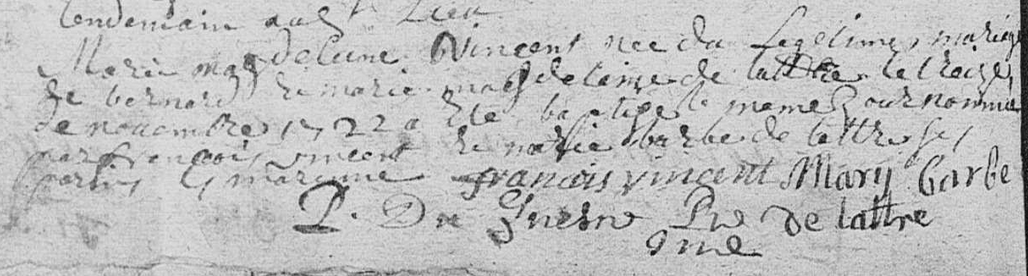 lendemain aud lieu
Marie magdeleine Vincent née du legitime mariage
de bernard & marie magdelaine de lattre le treize
de novembre 1722 a ete baptisé le meme jour nommée
par francois vincent & marie barbe de lattre ses
parin & marinne francois vincent Mary barbe
P. Du Quesne de lattre